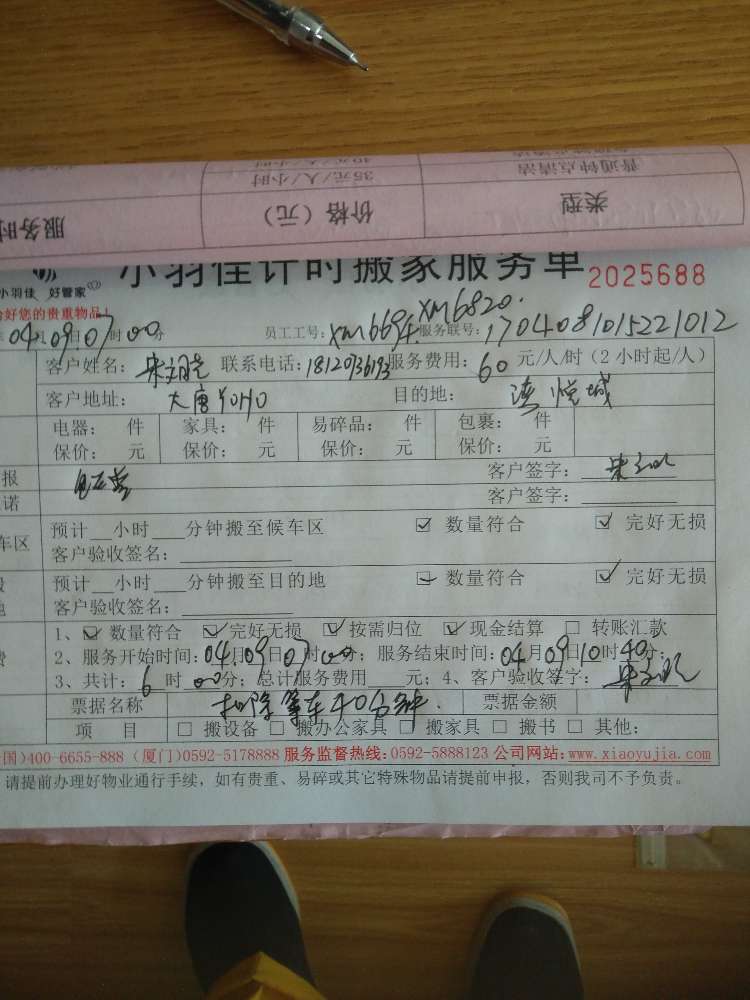 普通钟点清洁
35元/人/小时
类型
价格（元）
服务时
小羽佳计时搬家服务单 2025688
小羽佳 好管家
好您的贵重物品！
04月09日07时00分 员工工号：XM6694 XM6820. 服务联号：1704081015221012
客户姓名： 联系电话：18120736193 服务费用：60元/人/时（2小时起/人）
客户地址：大唐YOHO 目的地：湾悦城
电器： 件 家具： 件 易碎品： 件 包裹： 件
保价： 元 保价： 元 保价： 元 保价： 元
报 客户签字：
诺 客户签字：
车区 预计__小时___分钟搬至候车区 ☑ 数量符合 ☑ 完好无损
客户验收签名：
预计__小时___分钟搬至目的地 ☑ 数量符合 ☑ 完好无损
地 客户验收签名：
1、☑ 数量符合 ☑ 完好无损 ☑ 按需归位 ☑ 现金结算 □ 转账汇款
费 2、服务开始时间：04月09日07时00分；服务结束时间：04月09日10时40分；
3、共计：6时00分；总计服务费用___元；4、客户验收签字：
票据名称 扣除等车40分钟. 票据金额
项 目 □ 搬设备 □ 搬办公家具 □ 搬家具 □ 搬书 □ 其他：
国)400-6655-888 (厦门)0592-5178888 服务监督热线:0592-5888123 公司网站:www.xiaoyujia.com
请提前办理好物业通行手续，如有贵重、易碎或其它特殊物品请提前申报，否则我司不予负责。